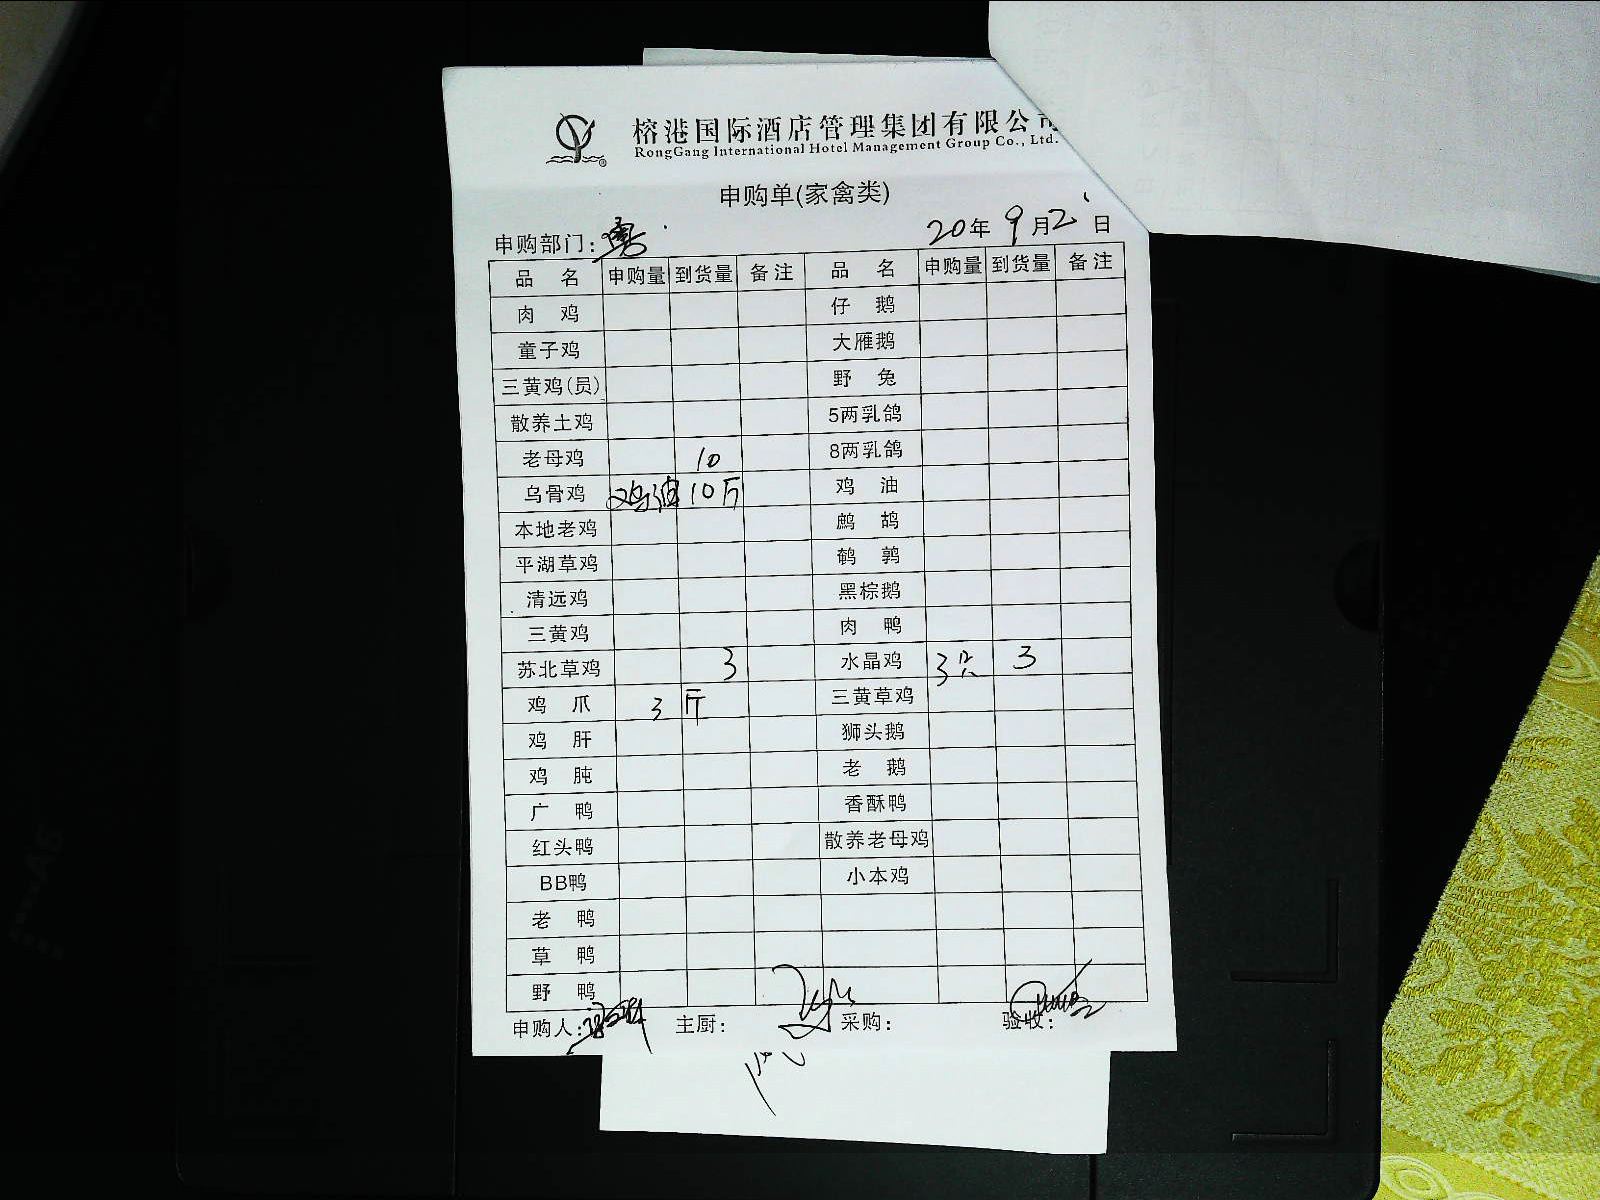 榕港国际酒店管理集团有限公司
RongGang International Hotel Management Group Co., Ltd.
申购单(家禽类)
申购部门: 20年9月2日
品 名 申购量 到货量 备注 品 名 申购量 到货量 备注
肉 鸡 仔 鹅
童子鸡 大雁鹅
三黄鸡(员) 野 兔
散养土鸡 5两乳鸽
老母鸡 10 8两乳鸽
乌骨鸡 鸡油 10斤 鸡 油
本地老鸡 鹧 鸪
平湖草鸡 鹌 鹑
清远鸡 黑棕鹅
三黄鸡 肉 鸭
苏北草鸡 3 水晶鸡 3只 3
鸡 爪 3斤 三黄草鸡
鸡 肝 狮头鹅
鸡 肫 老 鹅
广 鸭 香酥鸭
红头鸭 散养老母鸡
BB鸭 小本鸡
老 鸭
草 鸭
野 鸭
申购人: 主厨: 采购: 验收: